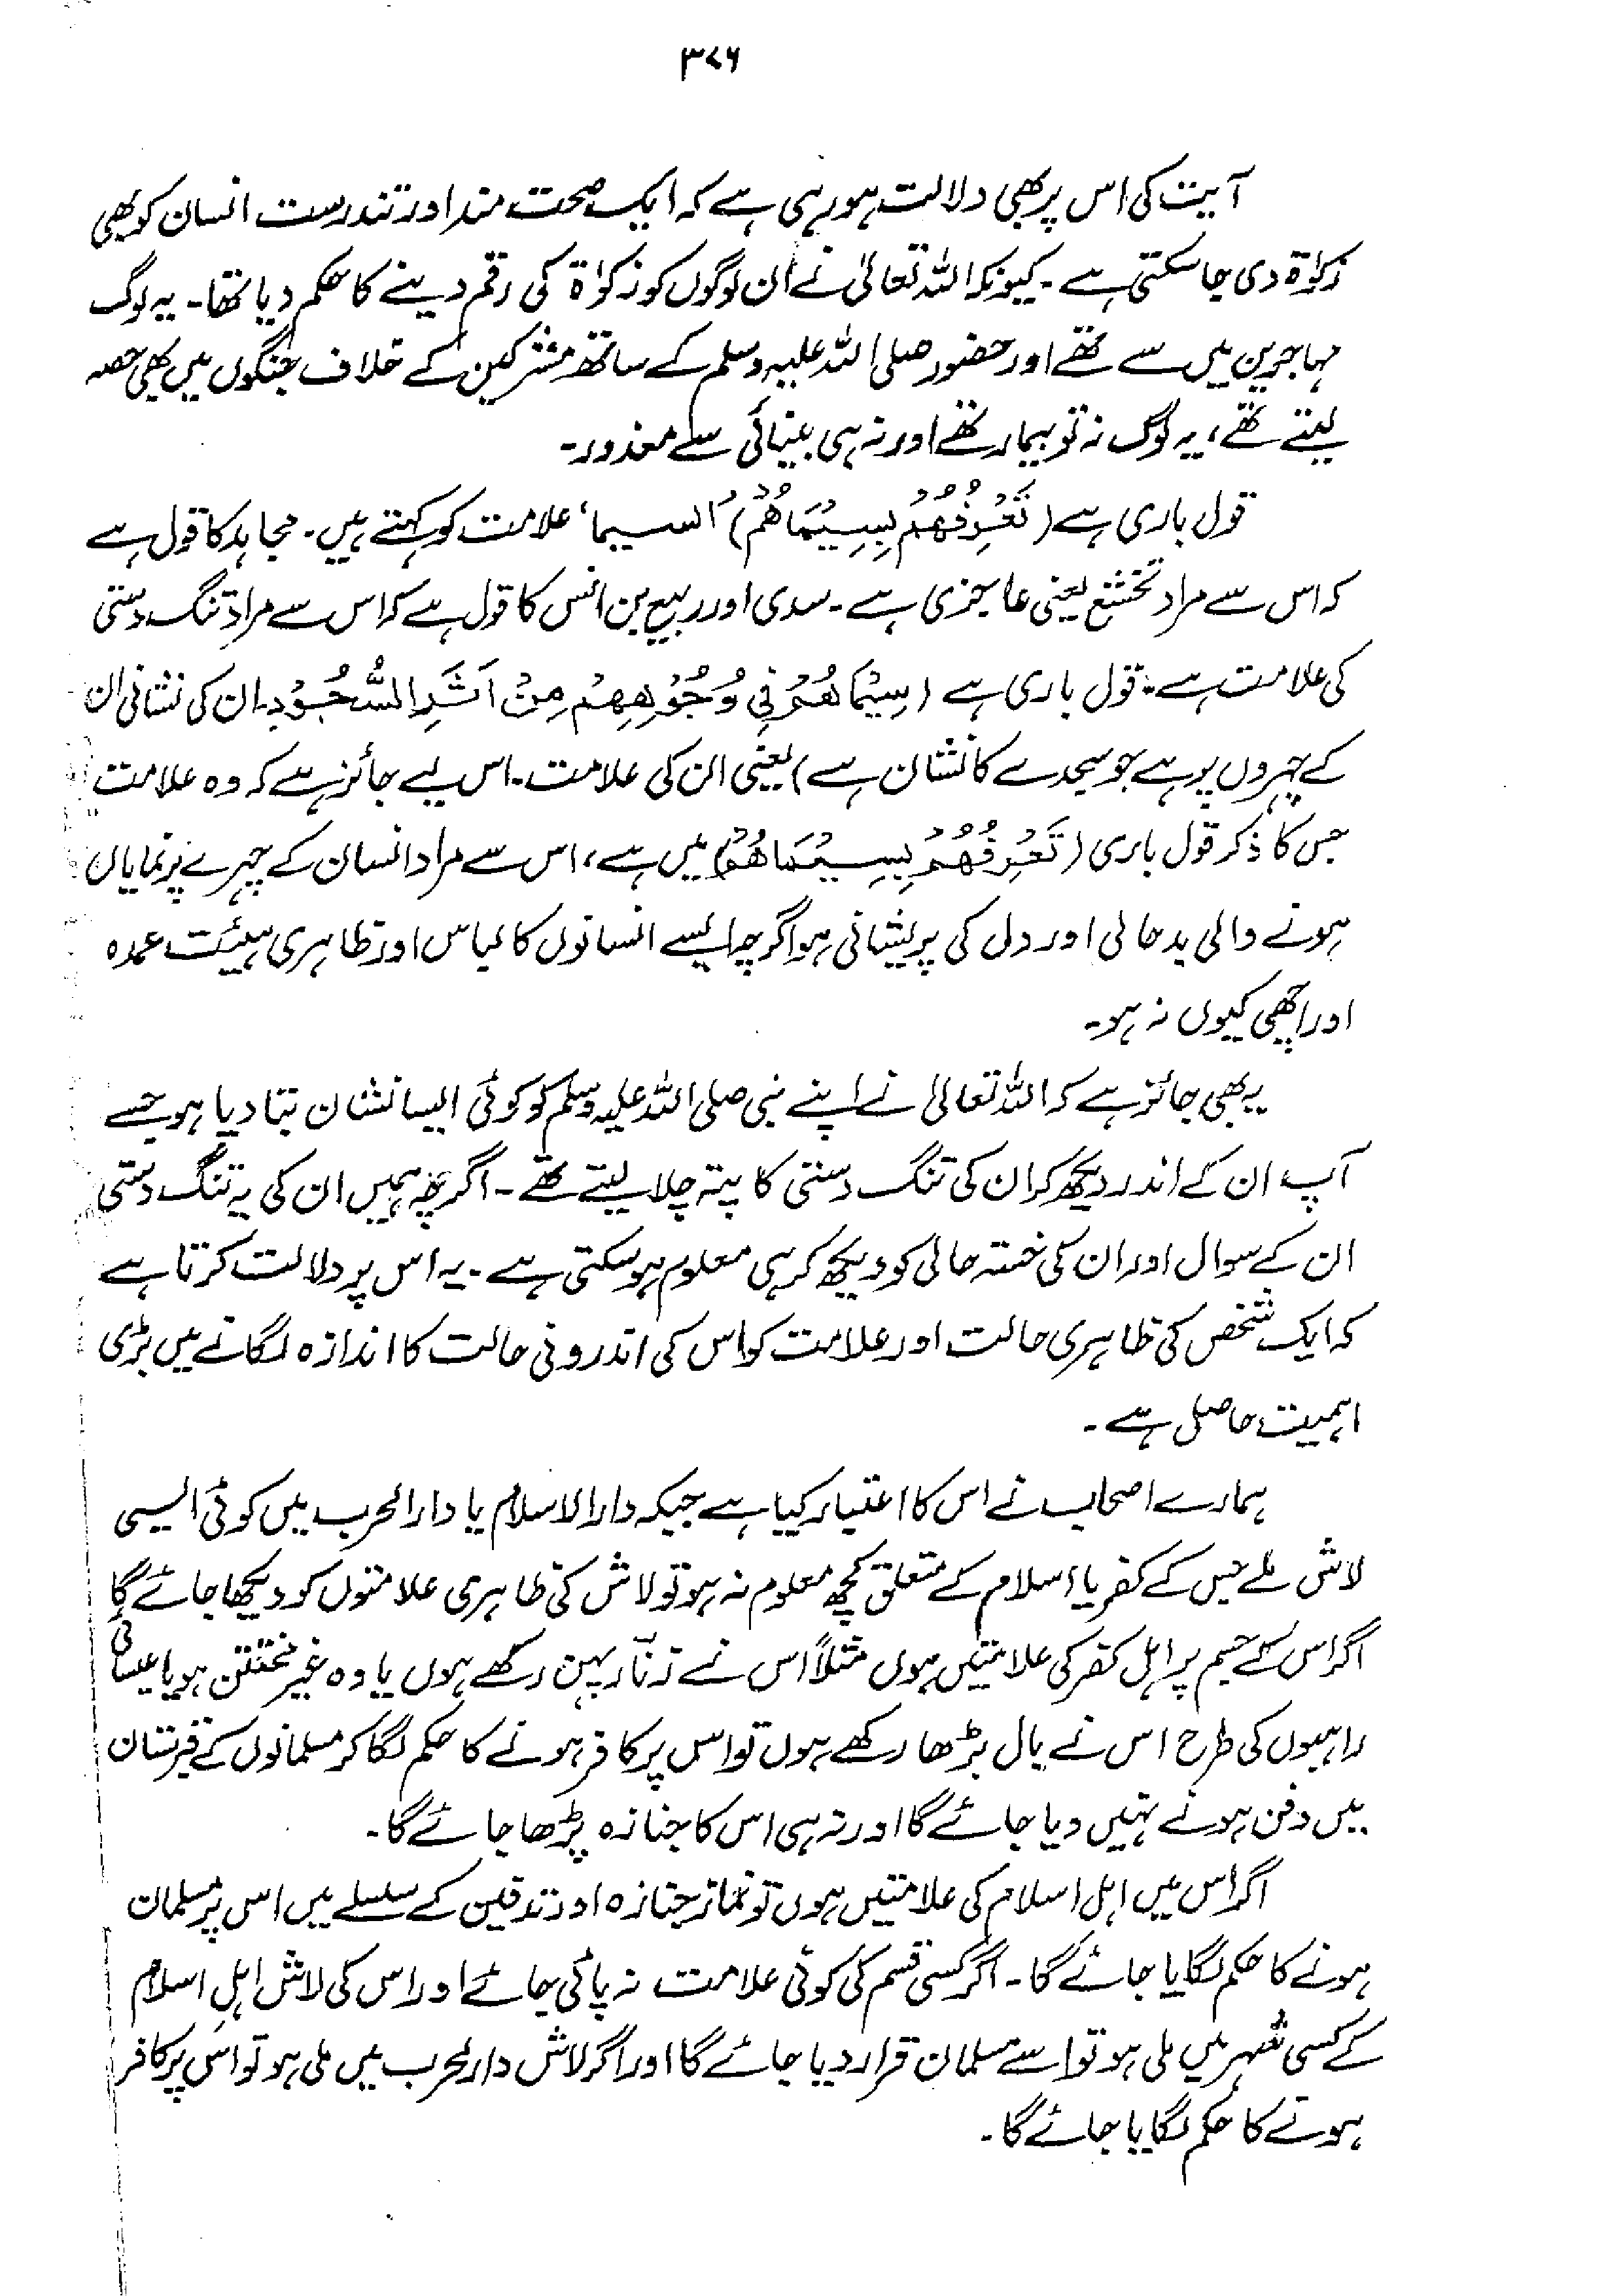 ۳۷۶
آیت کی اس پر بھی دلالت ہو رہی ہے کہ ایک صحت مند اور تندرست انسان کو بھی
زکوٰۃ دی جا سکتی ہے۔ کیونکہ اللہ تعالیٰ نے ان لوگوں کو زکوٰۃ کی رقم دینے کا حکم دیا تھا۔ یہ لوگ
مہاجرین میں سے تھے اور حضور صلی اللہ علیہ وسلم کے ساتھ مشرکین کے خلاف جنگوں میں بھی حصہ
لیتے تھے، یہ لوگ نہ تو بیمار تھے اور نہ ہی بینائی سے معذور۔
قول باری ہے (تَعْرِفُهُمْ بِسِيْمَاهُمْ) 'السیما' علامت کو کہتے ہیں۔ مجاہد کا قول ہے
کہ اس سے مراد تخشّع یعنی عاجزی ہے۔ سدی اور ربیع بن انس کا قول ہے کہ اس سے مراد تنگ دستی
کی علامت ہے۔ قول باری ہے (سِيْمَاهُمْ فِي وُجُوْهِهِمْ مِنْ اَثَرِ السُّجُوْدِ۔ ان کی نشانی ان
کے چہروں پر ہے جو سجدے کا نشان ہے) یعنی ان کی علامت۔ اس لیے جائز ہے کہ وہ علامت
جس کا ذکر قول باری (تَعْرِفُهُمْ بِسِيْمَاهُمْ) میں ہے، اس سے مراد انسان کے چہرے پر نمایاں
ہونے والی بدحالی اور دل کی پریشانی ہو اگرچہ ایسے انسانوں کا لباس اور ظاہری ہیئت عمدہ
اور اچھی کیوں نہ ہو۔
یہ بھی جائز ہے کہ اللہ تعالیٰ نے اپنے نبی صلی اللہ علیہ وسلم کو کوئی ایسا نشان بتا دیا ہو جسے
آپ ان کے اندر دیکھ کر ان کی تنگ دستی کا پتہ چلا لیتے تھے۔ اگرچہ ہمیں ان کی یہ تنگ دستی
ان کے سوال اور ان کی خستہ حالی کو دیکھ کر ہی معلوم ہو سکتی ہے۔ یہ اس پر دلالت کرتا ہے
کہ ایک شخص کی ظاہری حالت اور علامت کو اس کی اندرونی حالت کا اندازہ لگانے میں بڑی
اہمیت حاصل ہے۔
ہمارے اصحاب نے اس کا اعتبار کیا ہے جبکہ دارالاسلام یا دارالحرب میں کوئی ایسی
لاش ملے جس کے کفر یا اسلام کے متعلق کچھ معلوم نہ ہو تو لاش کی ظاہری علامتوں کو دیکھا جائے گا
اگر اس کے جسم پر اہل کفر کی علامتیں ہوں مثلاً اس نے زنّار پہن رکھے ہوں یا وہ غیر مختتن ہو یا عیسائی
راہبوں کی طرح اس نے بال بڑھا رکھے ہوں تو اس پر کافر ہونے کا حکم لگا کر مسلمانوں کے قبرستان
میں دفن ہونے نہیں دیا جائے گا اور نہ ہی اس کا جنازہ پڑھا جائے گا۔
اگر اس میں اہل اسلام کی علامتیں ہوں تو نماز جنازہ اور تدفین کے سلسلے میں اس پر مسلمان
ہونے کا حکم لگایا جائے گا۔ اگر کسی قسم کی کوئی علامت نہ پائی جائے اور اس کی لاش اہلِ اسلام
کے کسی شہر میں ملی ہو تو اسے مسلمان قرار دیا جائے گا اور اگر لاش دارلحرب میں ملی ہو تو اس پر کافر
ہونے کا حکم لگایا جائے گا۔